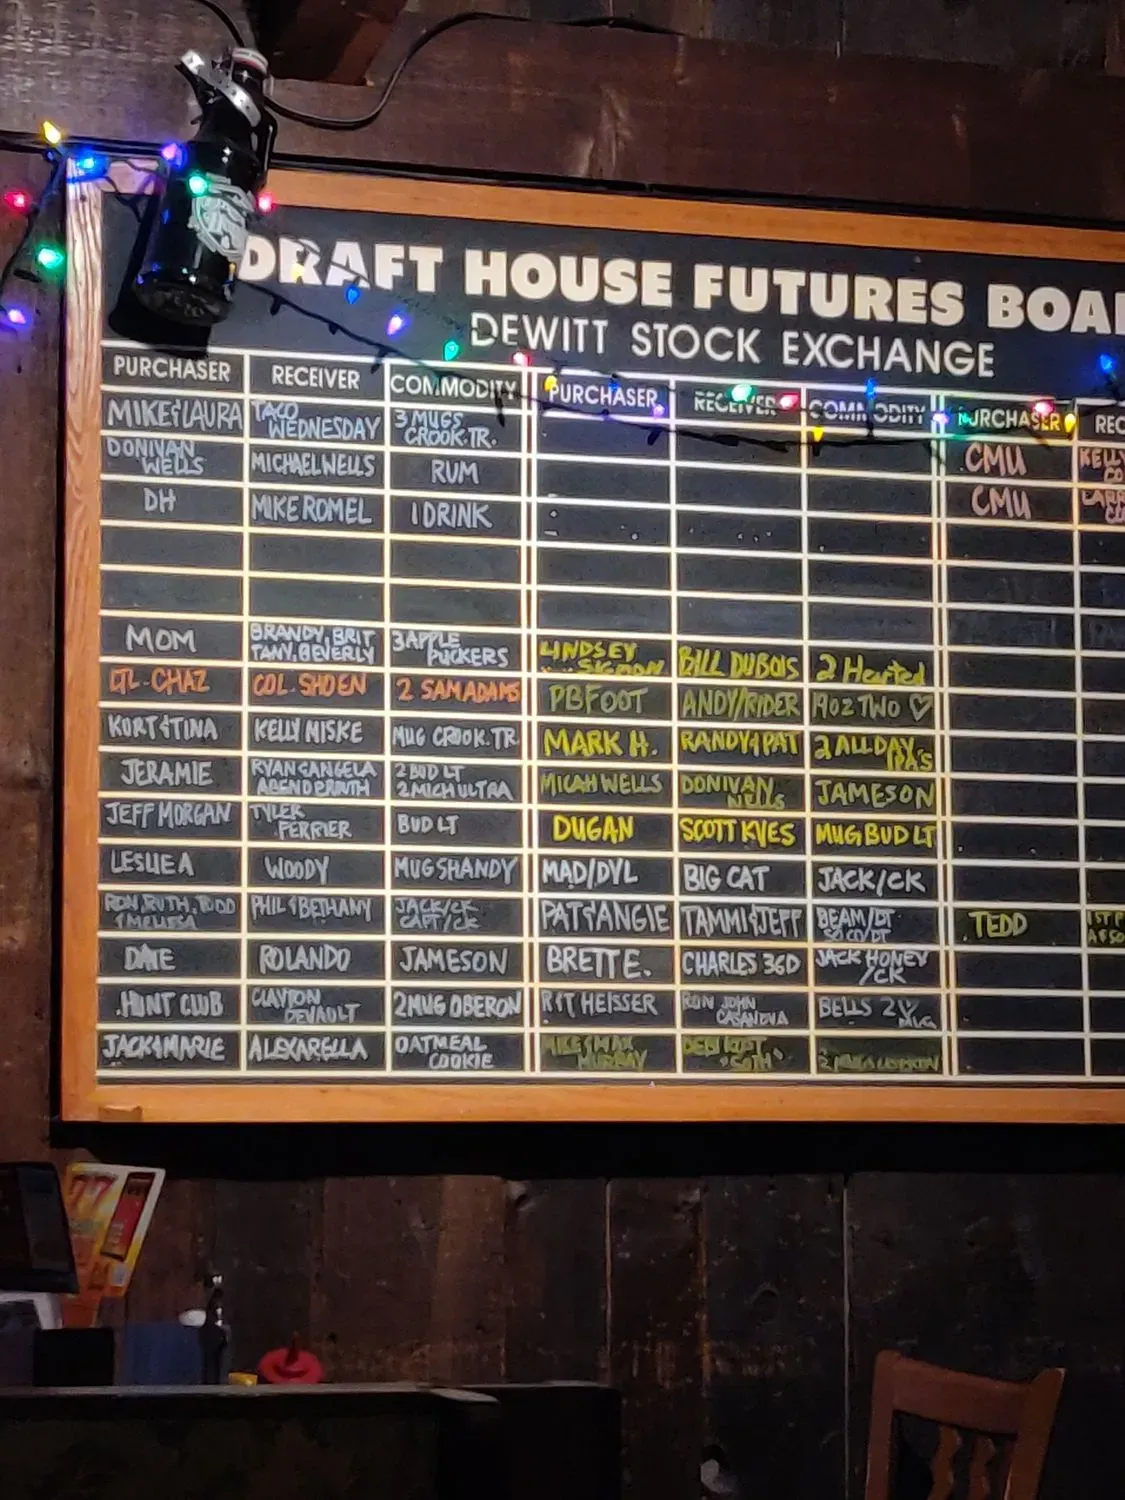 DRAFT HOUSE FUTURES BOA
DEWITT STOCK EXCHANGE
PURCHASER RECEIVER COMMODITY PURCHASER RECEIVER COMMODITY PURCHASER REC
MIKE&LAURA TACO WEDNESDAY 3 MUGS CROOK.TR.
DONIVAN WELLS MICHAEL WELLS RUM CMU KELLY
DH MIKE ROMEL 1 DRINK CMU
MOM BRANDY, BRIT TANY, BEVERLY 3 APPLE PUCKERS LINDSEY BILL DUBOIS 2 Hearted
LTL. CHAZ COL. SHOEN 2 SAM ADAMS PBFOOT ANDY/RIDER 1902 TWO ♡
KORT&TINA KELLY MISKE MUG CROOK.TR. MARK H. RANDY&PAT 2 ALLDAY IPA'S
JERAMIE RYAN&ANGELA 2 BUD LT 2 MICH ULTRA MICAH WELLS DONIVAN WELLS JAMESON
JEFF MORGAN TYLER PERRIER BUD LT DUGAN SCOTT KVES MUG BUD LT
LESLIE A WOODY MUG SHANDY MAD/DYL BIG CAT JACK/CK
RON, RUTH, TODD &MELISSA PHIL&BETHANY JACK/CK CAPT/CK PAT&ANGIE TAMMI&JEFF BEAM/DT SO CO/DT TEDD
DATE ROLANDO JAMESON BRETT E. CHARLES 36D JACK HONEY /CK
HUNT CLUB CLAYTON DEVAULT 2 MUG OBERON RIT HEISSER RON JOHN CASANOVA BELLS 2 MUG
JACK&MARIE ALEXARELLA OATMEAL COOKIE MURRAY
77